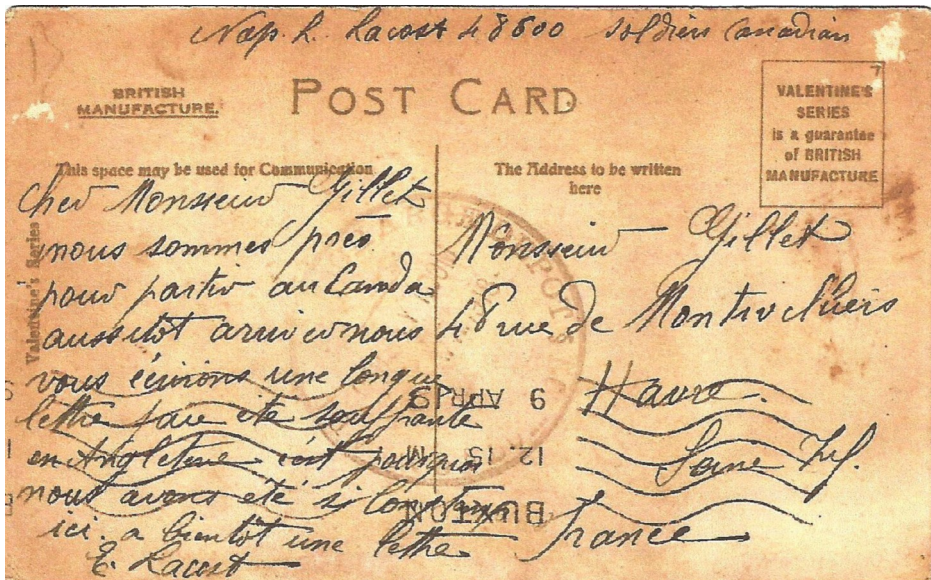 Nap. L. Lacost 48600 soldier Canadian
BRITISH
MANUFACTURE.
POST CARD
VALENTINE'S
SERIES
is a guarantee
of BRITISH
MANUFACTURE
This space may be used for Communication
The Address to be written
here
Valentine's Series
Cher Monsieur Gillet
nous sommes près
pour partir au Canda
aussitot arriver nous
vous écirons une longue
lettre jai été souffrante
en Angleterre c'est pourquoi
nous avons été si longtemps
ici. a bientôt une lettre
E. Lacost
Monsieur Gillet
48 rue de Montivilliers
Havre.
Seine Inf.
France
BUXTON
12. 15 PM
9 APR 19